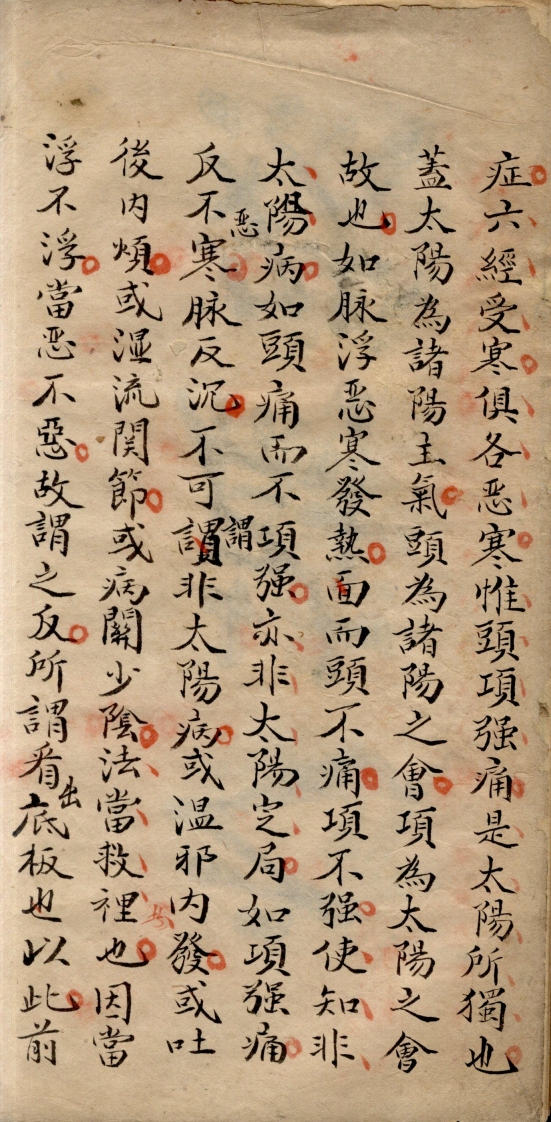 症六經受寒俱各恶寒惟頭項强痛是太陽所獨也
蓋太陽為諸陽主氣頭為諸陽之會項為太陽之會
故也如脉浮恶寒發熱面而頭不痛項不强使知非
太陽病如頭痛而不項强亦非太陽定局如項强痛
反不恶寒脉反沉不可謂非太陽病或温邪内發或吐
後内煩或湿流関節或病關少陰法當救裡也因當
浮不浮當恶不惡故謂之反所謂看出底板也以此前